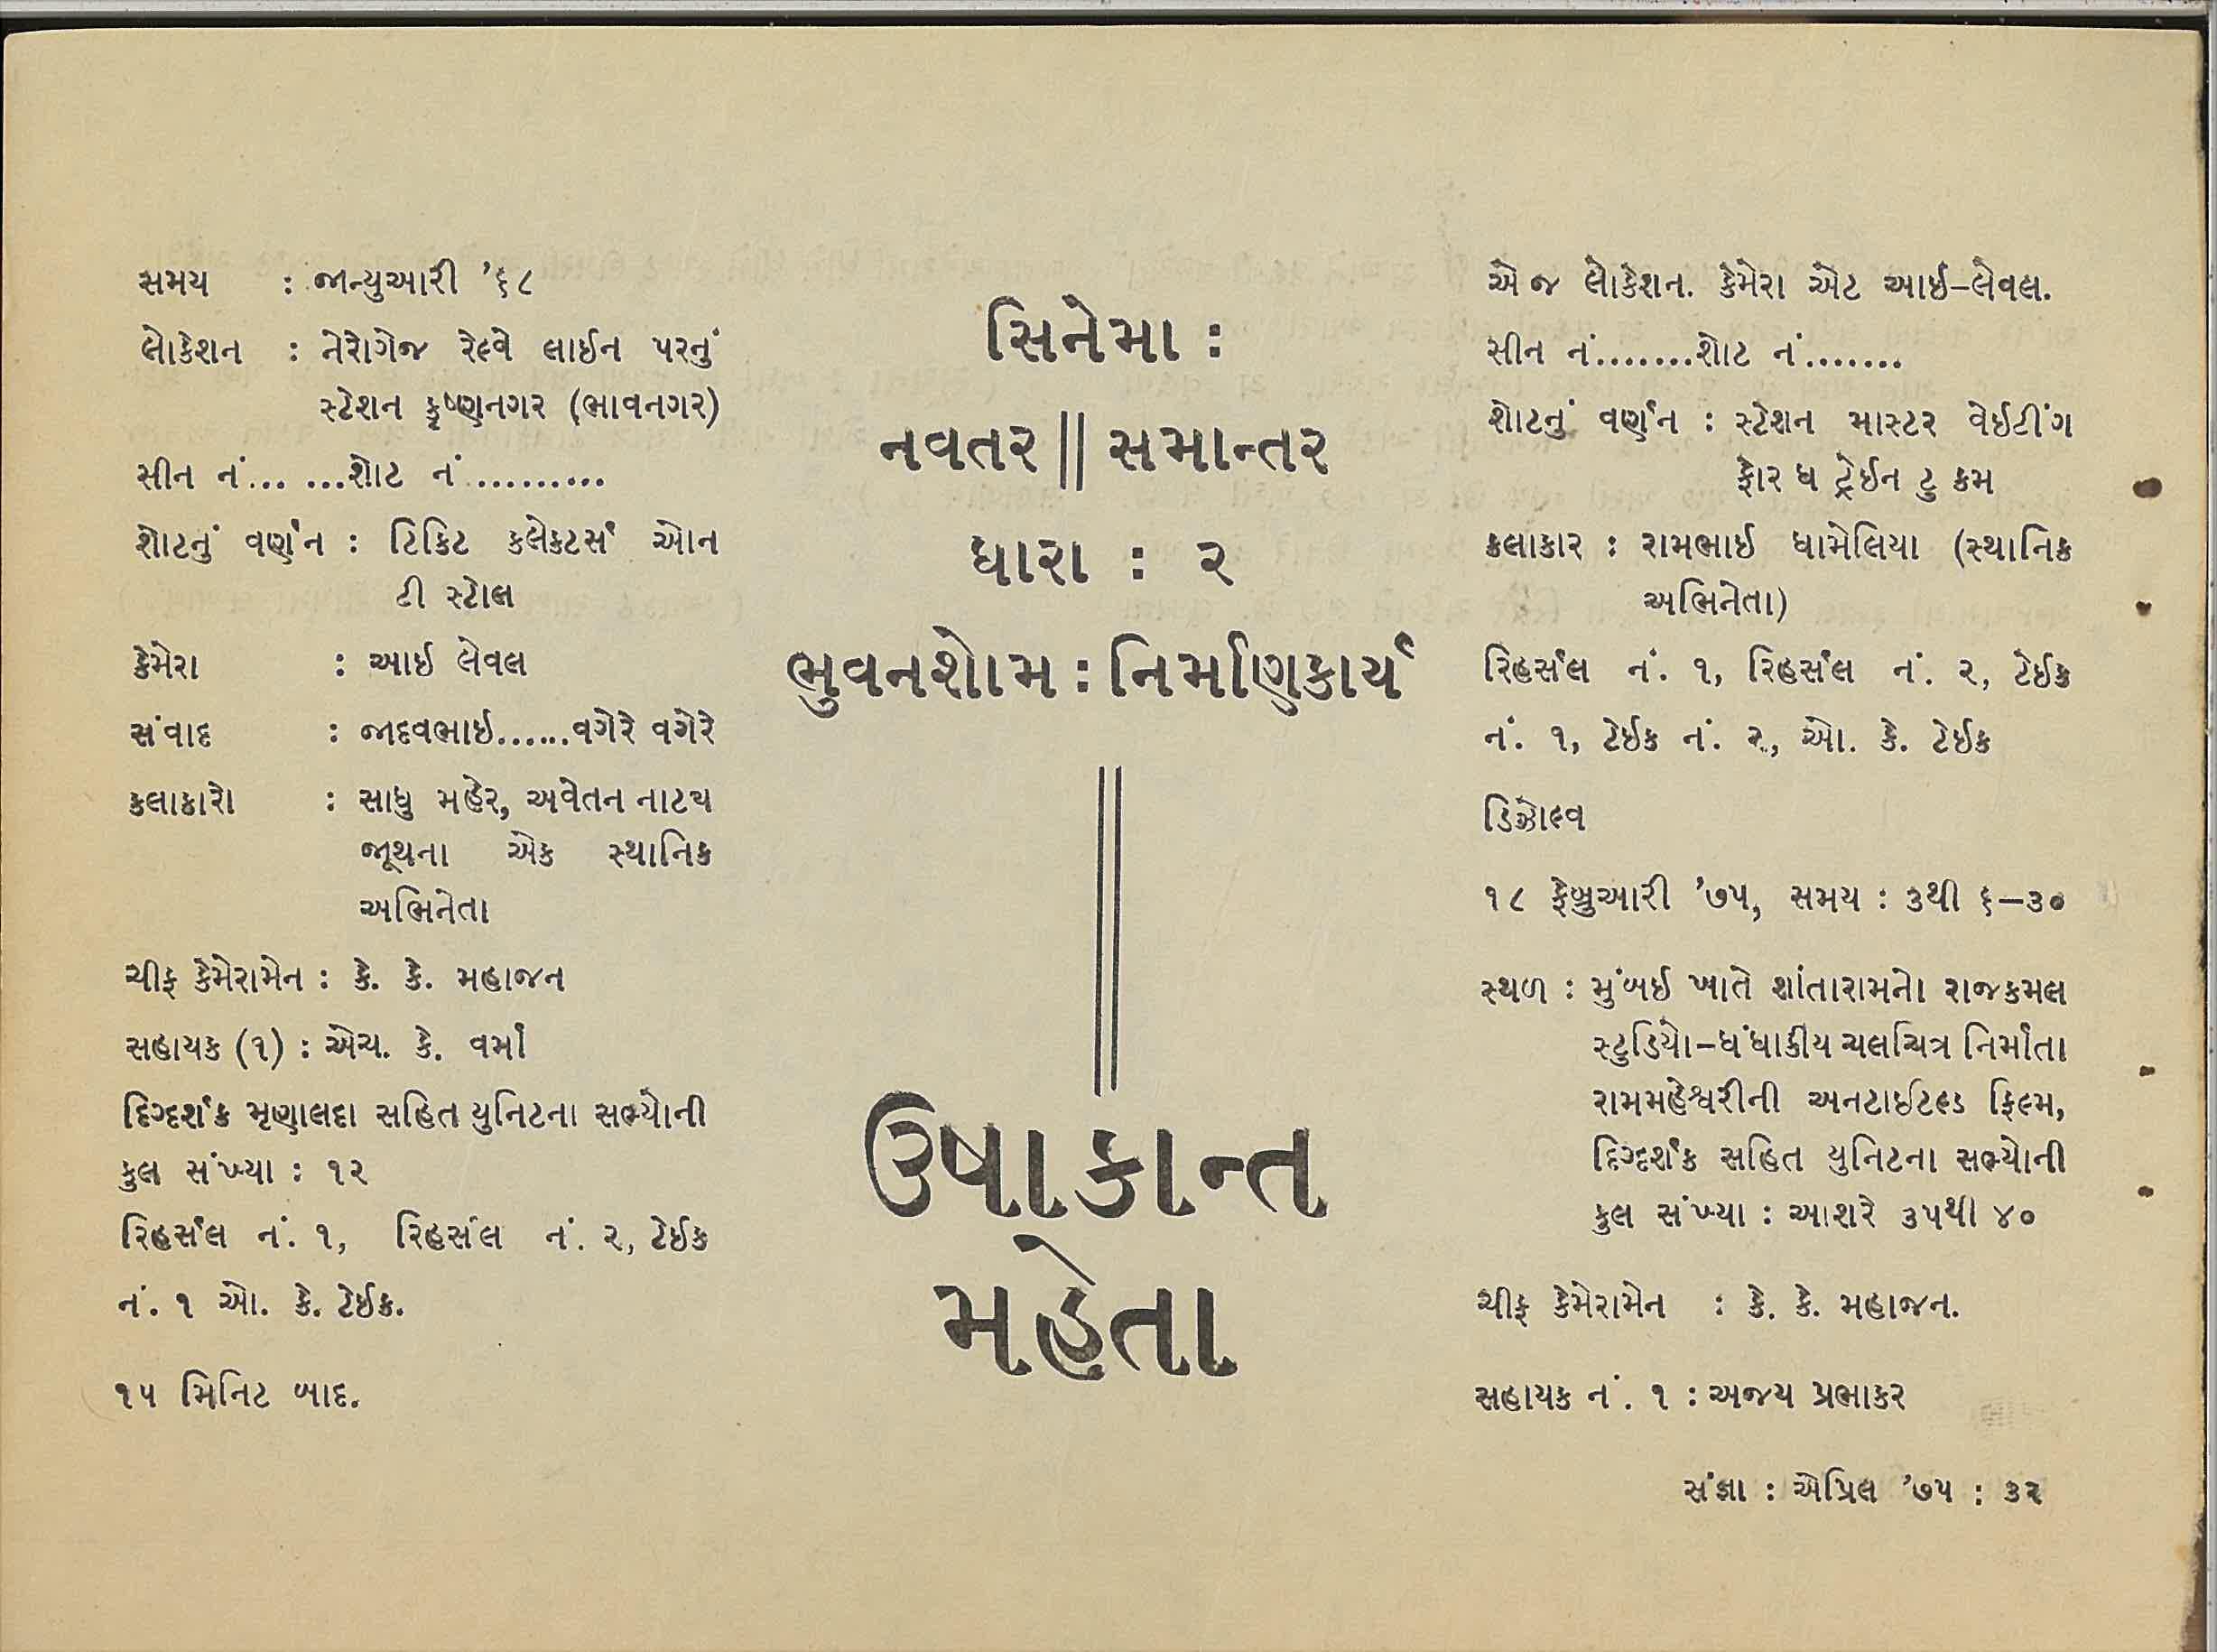 સમય : જાન્યુઆરી ’૬૮
લોકેશન : નેરોગેજ રેલ્વે લાઈન પરનું
સ્ટેશન કૃષ્ણનગર (ભાવનગર)
સીન નં... ...શોટ નં.........
શોટનું વર્ણન : ટિકિટ કલેકટર્સ ઓન
ટી સ્ટોલ
કેમેરા : આઇ લેવલ
સંવાદ : જાદવભાઇ......વગેરે વગેરે
કલાકારો : સાધુ મહેર, અવેતન નાટય
જૂથના એક સ્થાનિક
અભિનેતા
ચીફ કેમેરામેન : કે. કે. મહાજન
સહાયક (૧) : એચ. કે. વર્મા
દિગ્દર્શક મૃણાલદા સહિત યુનિટના સભ્યોની
કુલ સંખ્યા : ૧૨
રિહર્સલ નં. ૧, રિહર્સલ નં. ૨, ટેઈક
નં. ૧ ઓ. કે. ટેઈક.
૧૫ મિનિટ બાદ.
સિનેમા :
નવતર || સમાન્તર
ધારા : ૨
ભુવનશોમ : નિર્માણકાર્ય
ઉષાકાન્ત
મહેતા
એ જ લોકેશન. કેમેરા એટ આઇ–લેવલ.
સીન નં.......શોટ નં.......
શોટનું વર્ણન : સ્ટેશન માસ્ટર વેઈટીંગ
ફોર ધ ટ્રેઈન ટુ કમ
કલાકાર : રામભાઇ ધામેલિયા (સ્થાનિક
અભિનેતા)
રિહર્સલ નં. ૧, રિહર્સલ નં. ૨, ટેઈક
નં. ૧, ટેઈક નં. ૨, ઓ. કે. ટેઈક
ડિઝોલ્વ
૧૮ ફેબ્રુઆરી ’૭૫, સમય : ૩થી ૬–૩૦
સ્થળ : મુંબઈ ખાતે શાંતારામનો રાજકમલ
સ્ટુડિયો–ધંધાકીય ચલચિત્ર નિર્માતા
રામમહેશ્વરીની અનટાઈટલ્ડ ફિલ્મ,
દિગ્દર્શક સહિત યુનિટના સભ્યોની
કુલ સંખ્યા : આશરે ૩૫થી ૪૦
ચીફ કેમેરામેન : કે. કે. મહાજન.
સહાયક નં. ૧ : અજય પ્રભાકર
સંજ્ઞા : એપ્રિલ ’૭૫ : ૩૨